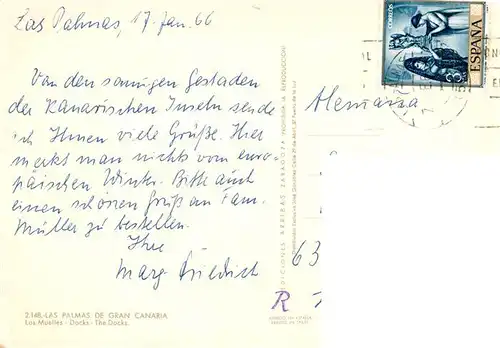 Las Palmas, 17. Jan. 66
Von den sonnigen Gestaden
der Kanarischen Inseln sende
ich Ihnen viele Grüße. Hier
merkt man nichts vom euro-
päischen Winter. Bitte auch
einen schönen Gruß an Fam.
Müller zu bestellen.
Ihre
Marg. Friedrich
2.148.-LAS PALMAS DE GRAN CANARIA
Los Muelles - Docks - The Docks.
EDICIONES ARRIBAS ZARAGOZA (PROHIBIDA LA REPRODUCCION)
CORREOS
ESPAÑA
Alemania
63
R